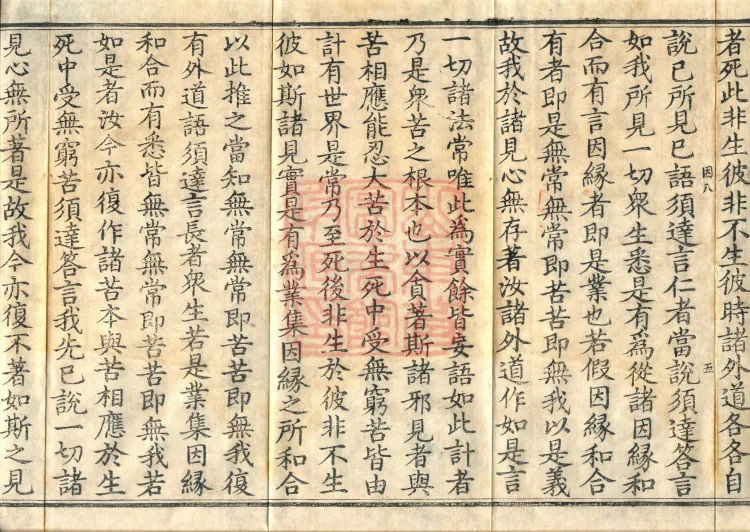 者死此非生彼非不生彼時諸外道各各自
說已所見已語須達言仁者當說須達答言
因八 五
如我所見一切衆生悉是有爲從諸因緣和
合而有言因緣者即是業也若假因緣和合
有者即是無常無常即苦苦即無我以是義
故我於諸見心無存著汝諸外道作如是言
一切諸法常唯此爲實餘皆妄語如此計者
乃是衆苦之根本也以貪著斯諸邪見者與
苦相應能忍大苦於生死中受無窮苦皆由
計有世界是常乃至死後非生於彼非不生
彼如斯諸見實是有爲業集因緣之所和合
以此推之當知無常無常即苦苦即無我復
有外道語須達言長者衆生若是業集因緣
和合而有悉皆無常無常即苦苦即無我若
如是者汝今亦復作諸苦本與苦相應於生
死中受無窮苦須達答言我先已說一切諸
見心無所著是故我今亦復不著如斯之見